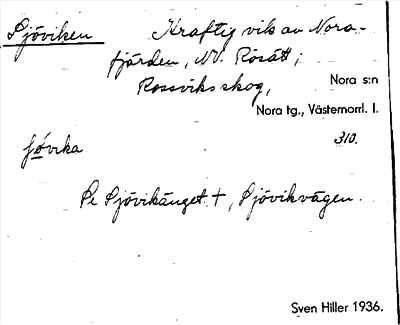 Sjöviken Kraftig vik av Nora-
fjärden, NV. Rösätt;
Rossviks skog, Nora s:n
Nora tg., Västernorrl. l.
310.
Se Sjövikänget +, Sjövikvägen.
Sven Hiller 1936.